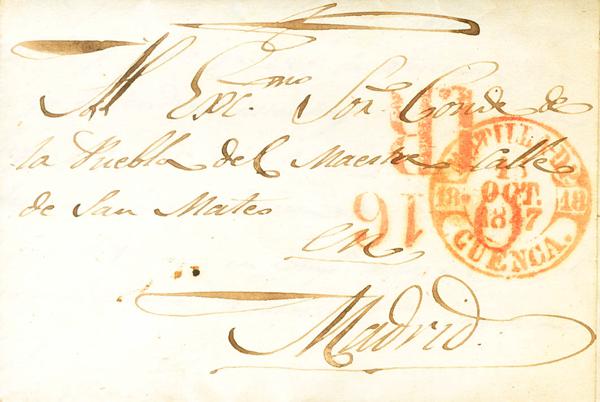 Al Exc.mo Señ. Conde de
la Puebla del Maestre Calle
de San Mateo
en
Madrid.
18 18
OCT.
1847
CUENCA.
16